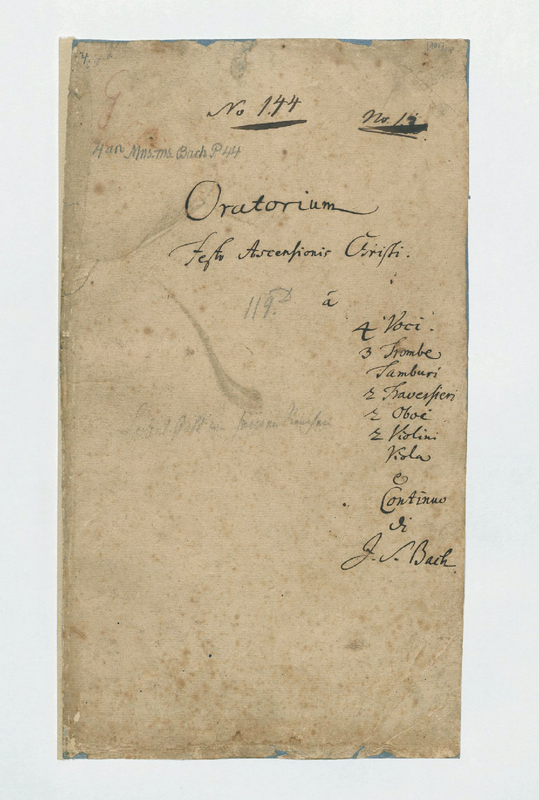 4.
No 144
No. 13
4 an Mus. ms. Bach P 44
Oratorium
Festo Ascensionis Christi.
119.
à
4 Voci.
3 Trombe
Tamburi
2 Traversieri
2 Oboe
2 Violini
Viola
e
Continuo
di
J. S. Bach.